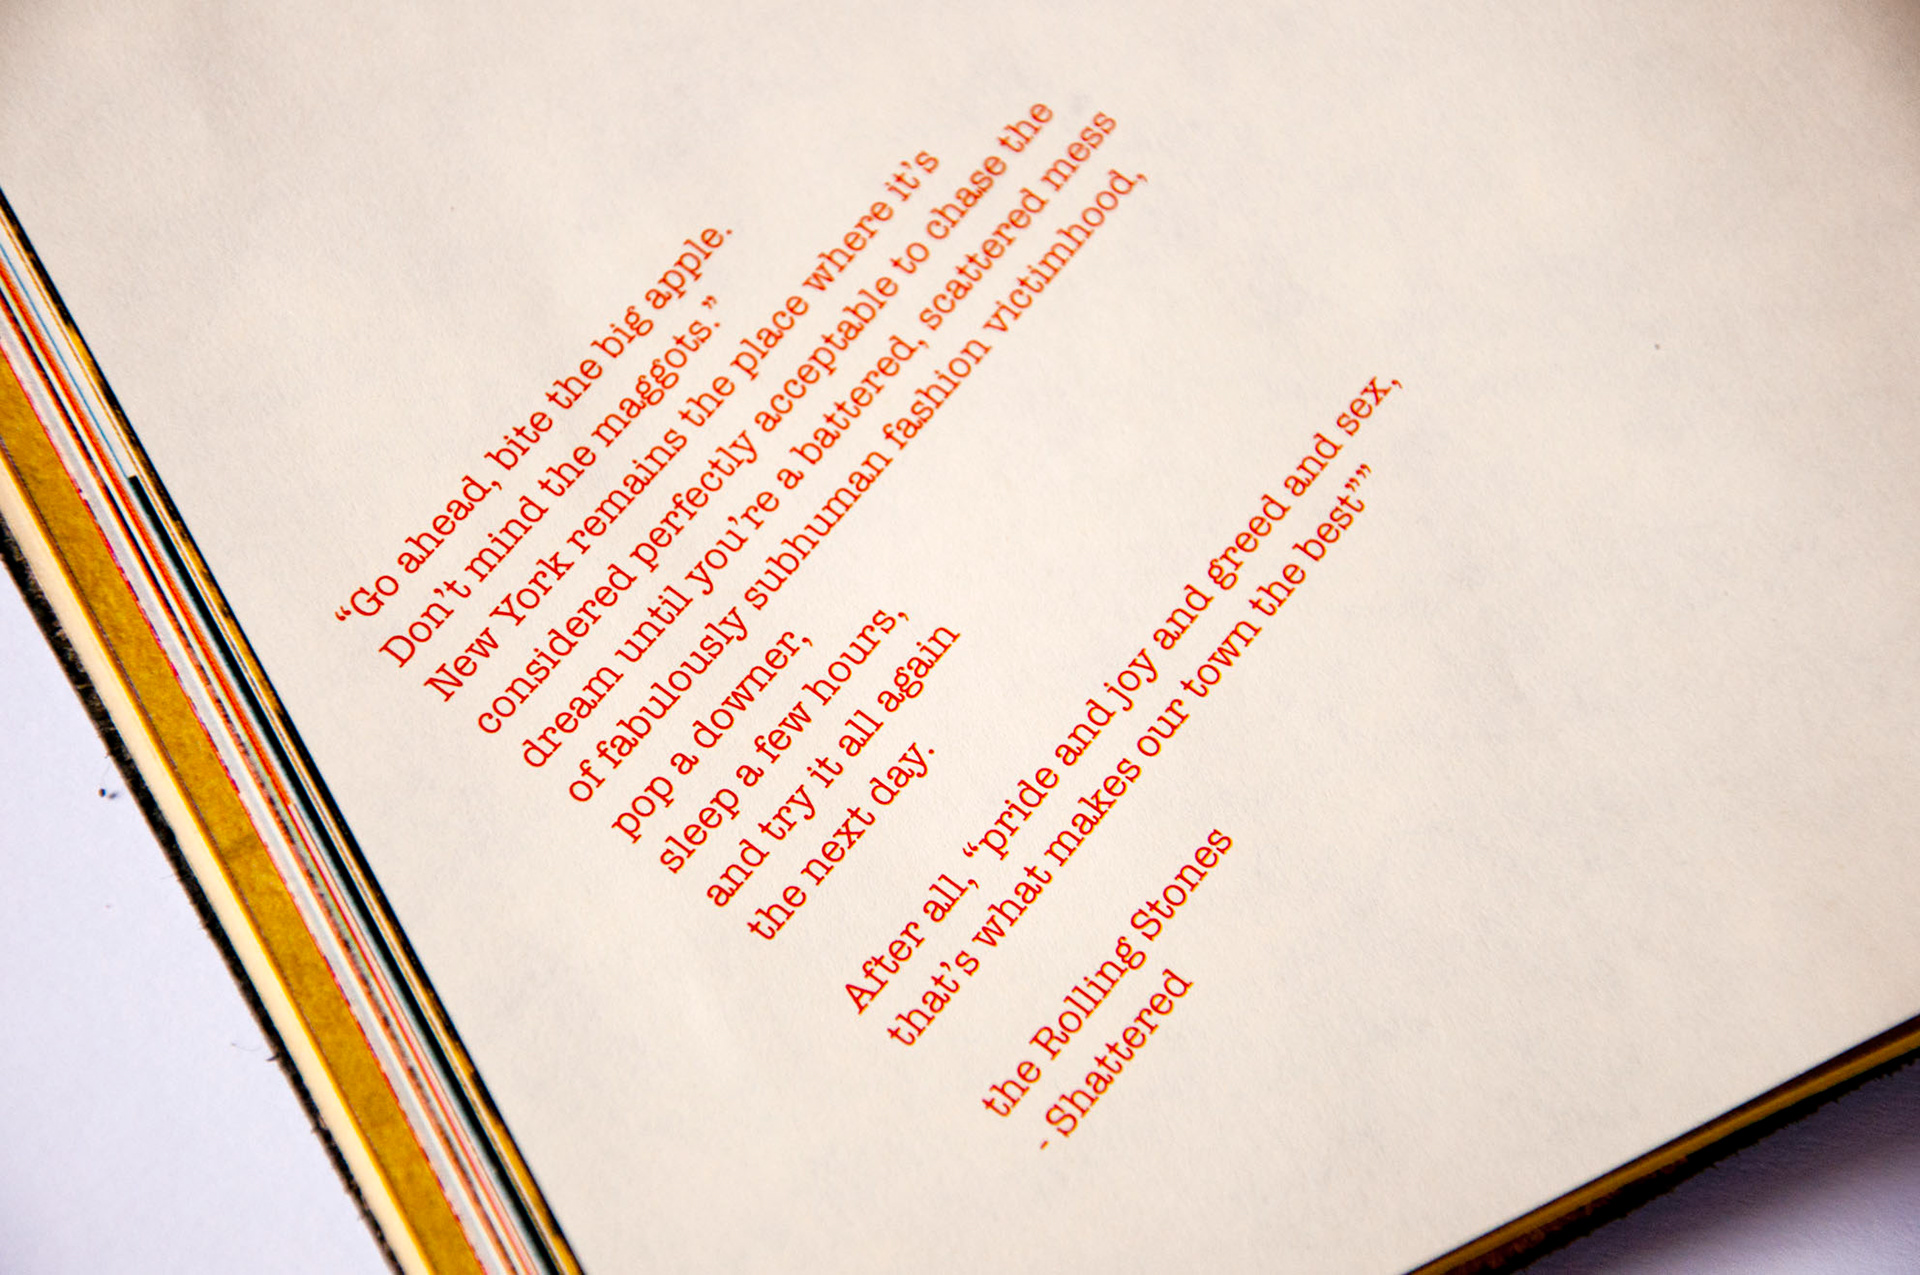 “Go ahead, bite the big apple.
Don’t mind the maggots.”
New York remains the place where it’s
considered perfectly acceptable to chase the
dream until you’re a battered, scattered mess
of fabulously subhuman fashion victimhood,
pop a downer,
sleep a few hours,
and try it all again
the next day.
After all, “pride and joy and greed and sex,
that’s what makes our town the best””
the Rolling Stones
- Shattered